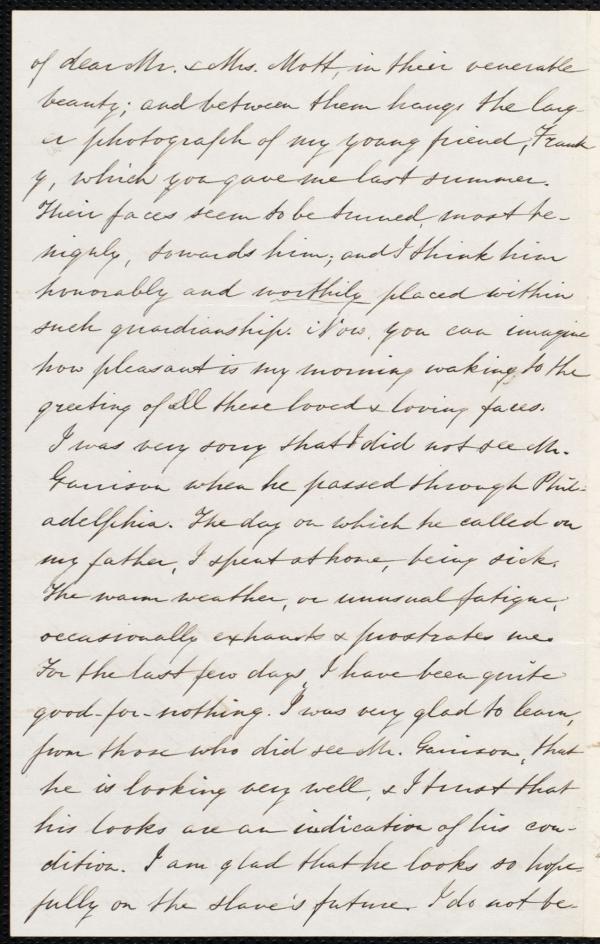 of dear Mr. & Mrs. Mott, in their venerable
beauty; and between them hangs the larg-
er photograph of my young friend, Frank
y, which you gave me last summer.
Their faces seem to be turned, most be-
nignly, towards him; and I think him
honorably and worthily placed within
such guardianship. Now, you can imagine
how pleasant is my morning waking to the
greeting of all these loved & loving faces.
I was very sorry that I did not see Mr.
Garrison when he passed through Phil-
adelphia. The day on which he called on
my father, I spent at home, being sick.
The warm weather, or unusual fatigue,
occasionally exhausts & prostrates me.
For the last few days, I have been quite
good-for-nothing. I was very glad to learn,
from those who did see Mr. Garrison, that
he is looking very well, & I trust that
his looks are an indication of his con-
dition. I am glad that he looks so hope-
fully on the slave's future. I do not be-